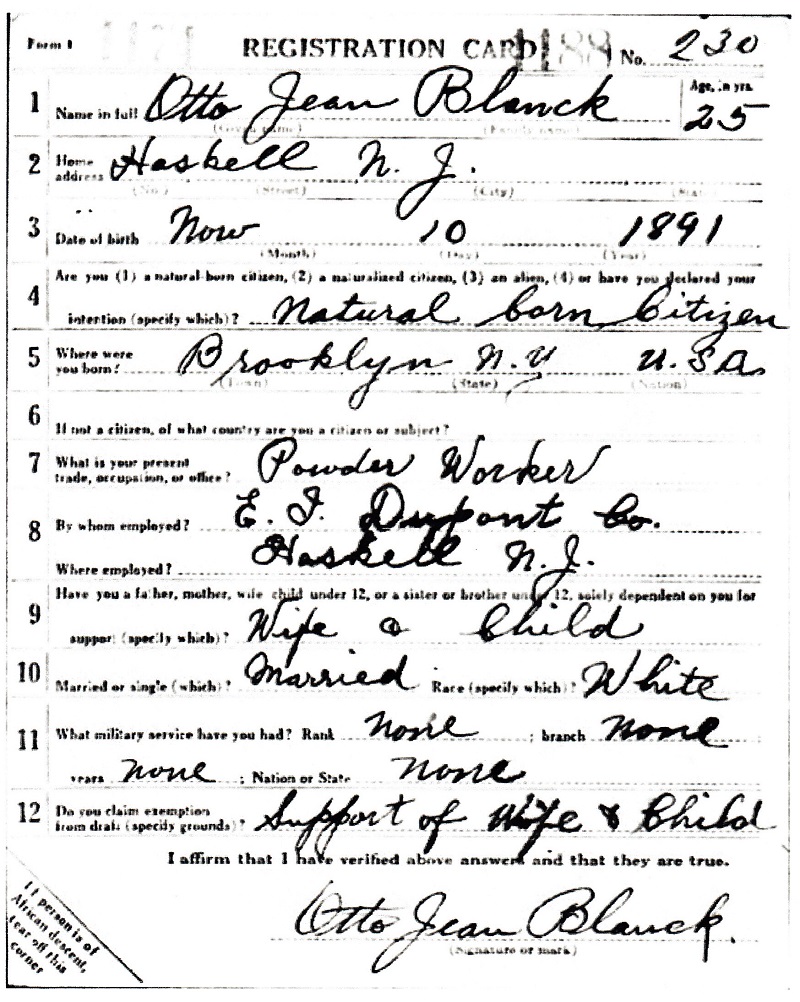 Form 1 1171 REGISTRATION CARD 1188 No. 230
1 Name in full Otto Jean Blanck Age, in yrs. 25
(Given name) (Family name)
2 Home address Haskell N. J.
(No.) (Street) (City) (State)
3 Date of birth Nov 10 1891
(Month) (Day) (Year)
4 Are you (1) a natural-born citizen, (2) a naturalized citizen, (3) an alien, (4) or have you declared your
intention (specify which)? Natural born Citizen
5 Where were you born? Brooklyn N.Y U.S.A.
(Town) (State) (Nation)
6 If not a citizen, of what country are you a citizen or subject?
7 What is your present trade, occupation, or office? Powder Worker
8 By whom employed? E. I. Dupont Co.
Where employed? Haskell N.J.
9 Have you a father, mother, wife child under 12, or a sister or brother under 12, solely dependent on you for
support (specify which)? Wife & Child
10 Married or single (which)? Married Race (specify which)? White
11 What military service have you had? Rank none ; branch none
years none ; Nation or State none
12 Do you claim exemption from draft (specify grounds)? Support of Wife & Child
I affirm that I have verified above answers and that they are true.
Otto Jean Blanck.
(Signature or mark)
If person is of
African descent,
tear off this
corner